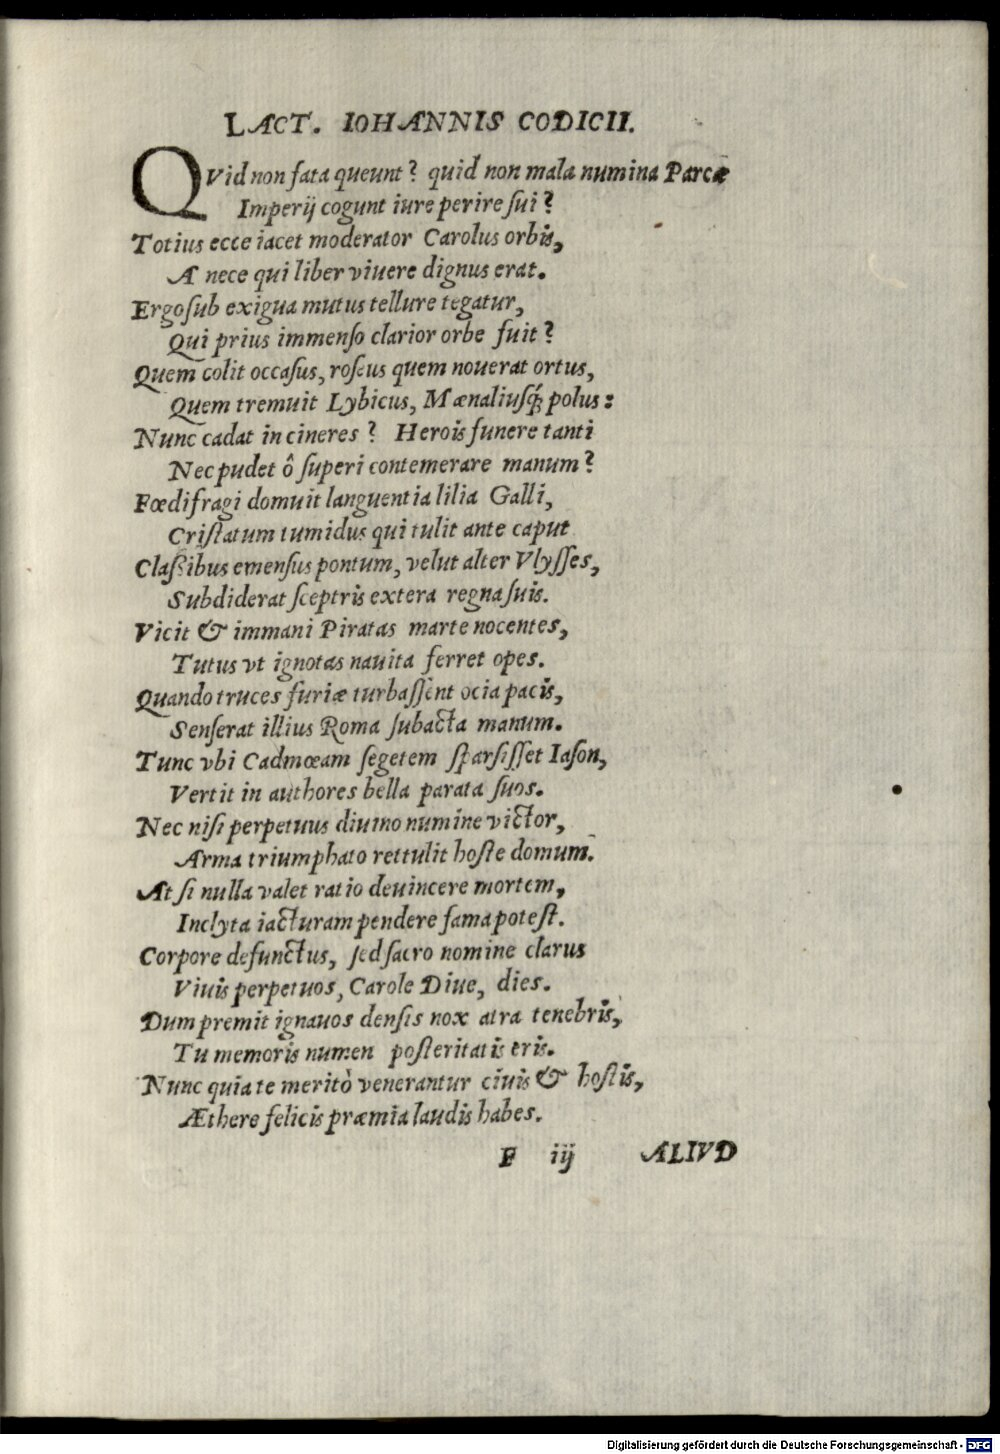 LACT. IOHANNIS CODICII.
QVid non fata queunt? quid non mala numina Parcæ
Imperij cogunt iure perire ſui?
Totius ecce iacet moderator Carolus orbis,
A nece qui liber viuere dignus erat.
Ergo ſub exigua mutus tellure tegatur,
Qui prius immenſo clarior orbe fuit?
Quem colit occaſus, roſeus quem nouerat ortus,
Quem tremuit Lybicus, Mænaliuſq́; polus:
Nunc cadat in cineres? Herois funere tanti
Nec pudet ô ſuperi contemerare manum?
Fœdifragi domuit languentia lilia Galli,
Criſtatum tumidus qui tulit ante caput
Claſsibus emenſus pontum, velut alter Vlyſſes,
Subdiderat ſceptris extera regna ſuis.
Vicit & immani Piratas marte nocentes,
Tutus vt ignotas nauita ferret opes.
Quando truces furiæ turbaſſent ocia pacis,
Senſerat illius Roma ſubacta manum.
Tunc vbi Cadmœam ſegetem ſparſiſſet Iaſon,
Vertit in authores bella parata ſuos.
Nec niſi perpetuus diuino numine victor,
Arma triumphato rettulit hoſte domum.
At ſi nulla valet ratio deuincere mortem,
Inclyta iacturam pendere fama poteſt.
Corpore defunctus, ſed ſacro nomine clarus
Viuis perpetuos, Carole Diue, dies.
Dum premit ignauos denſis nox atra tenebris,
Tu memoris numen poſteritatis eris.
Nunc quia te meritò venerantur ciuis & hoſtis,
Æthere felicis præmia laudis habes.
F iij ALIVD
Digitalisierung gefördert durch die Deutsche Forschungsgemeinschaft - DFG